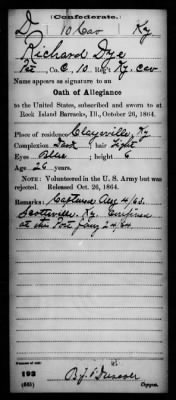 (Confederate.)
D 10 Cav Ky
Richard Dye
Pvt, Co. C, 10, Reg't Ky. Cav
Name appears as signature to an
Oath of Allegiance
to the United States, subscribed and sworn to at
Rock Island Barracks, Ill., October 26, 1864.
Place of residence Clayesville, Ky
Complexion Dark; hair Light
Eyes Blue; height 6
Age 26 years
NOTE: Volunteered in the U. S. Army but was
rejected. Released Oct. 26, 1864.
Remarks: Captured Aug 4/63.
Scottsville, Ky. Confined
at this Post Jany 24/64
193
(65)
B. J. Driscoll
Copyist.